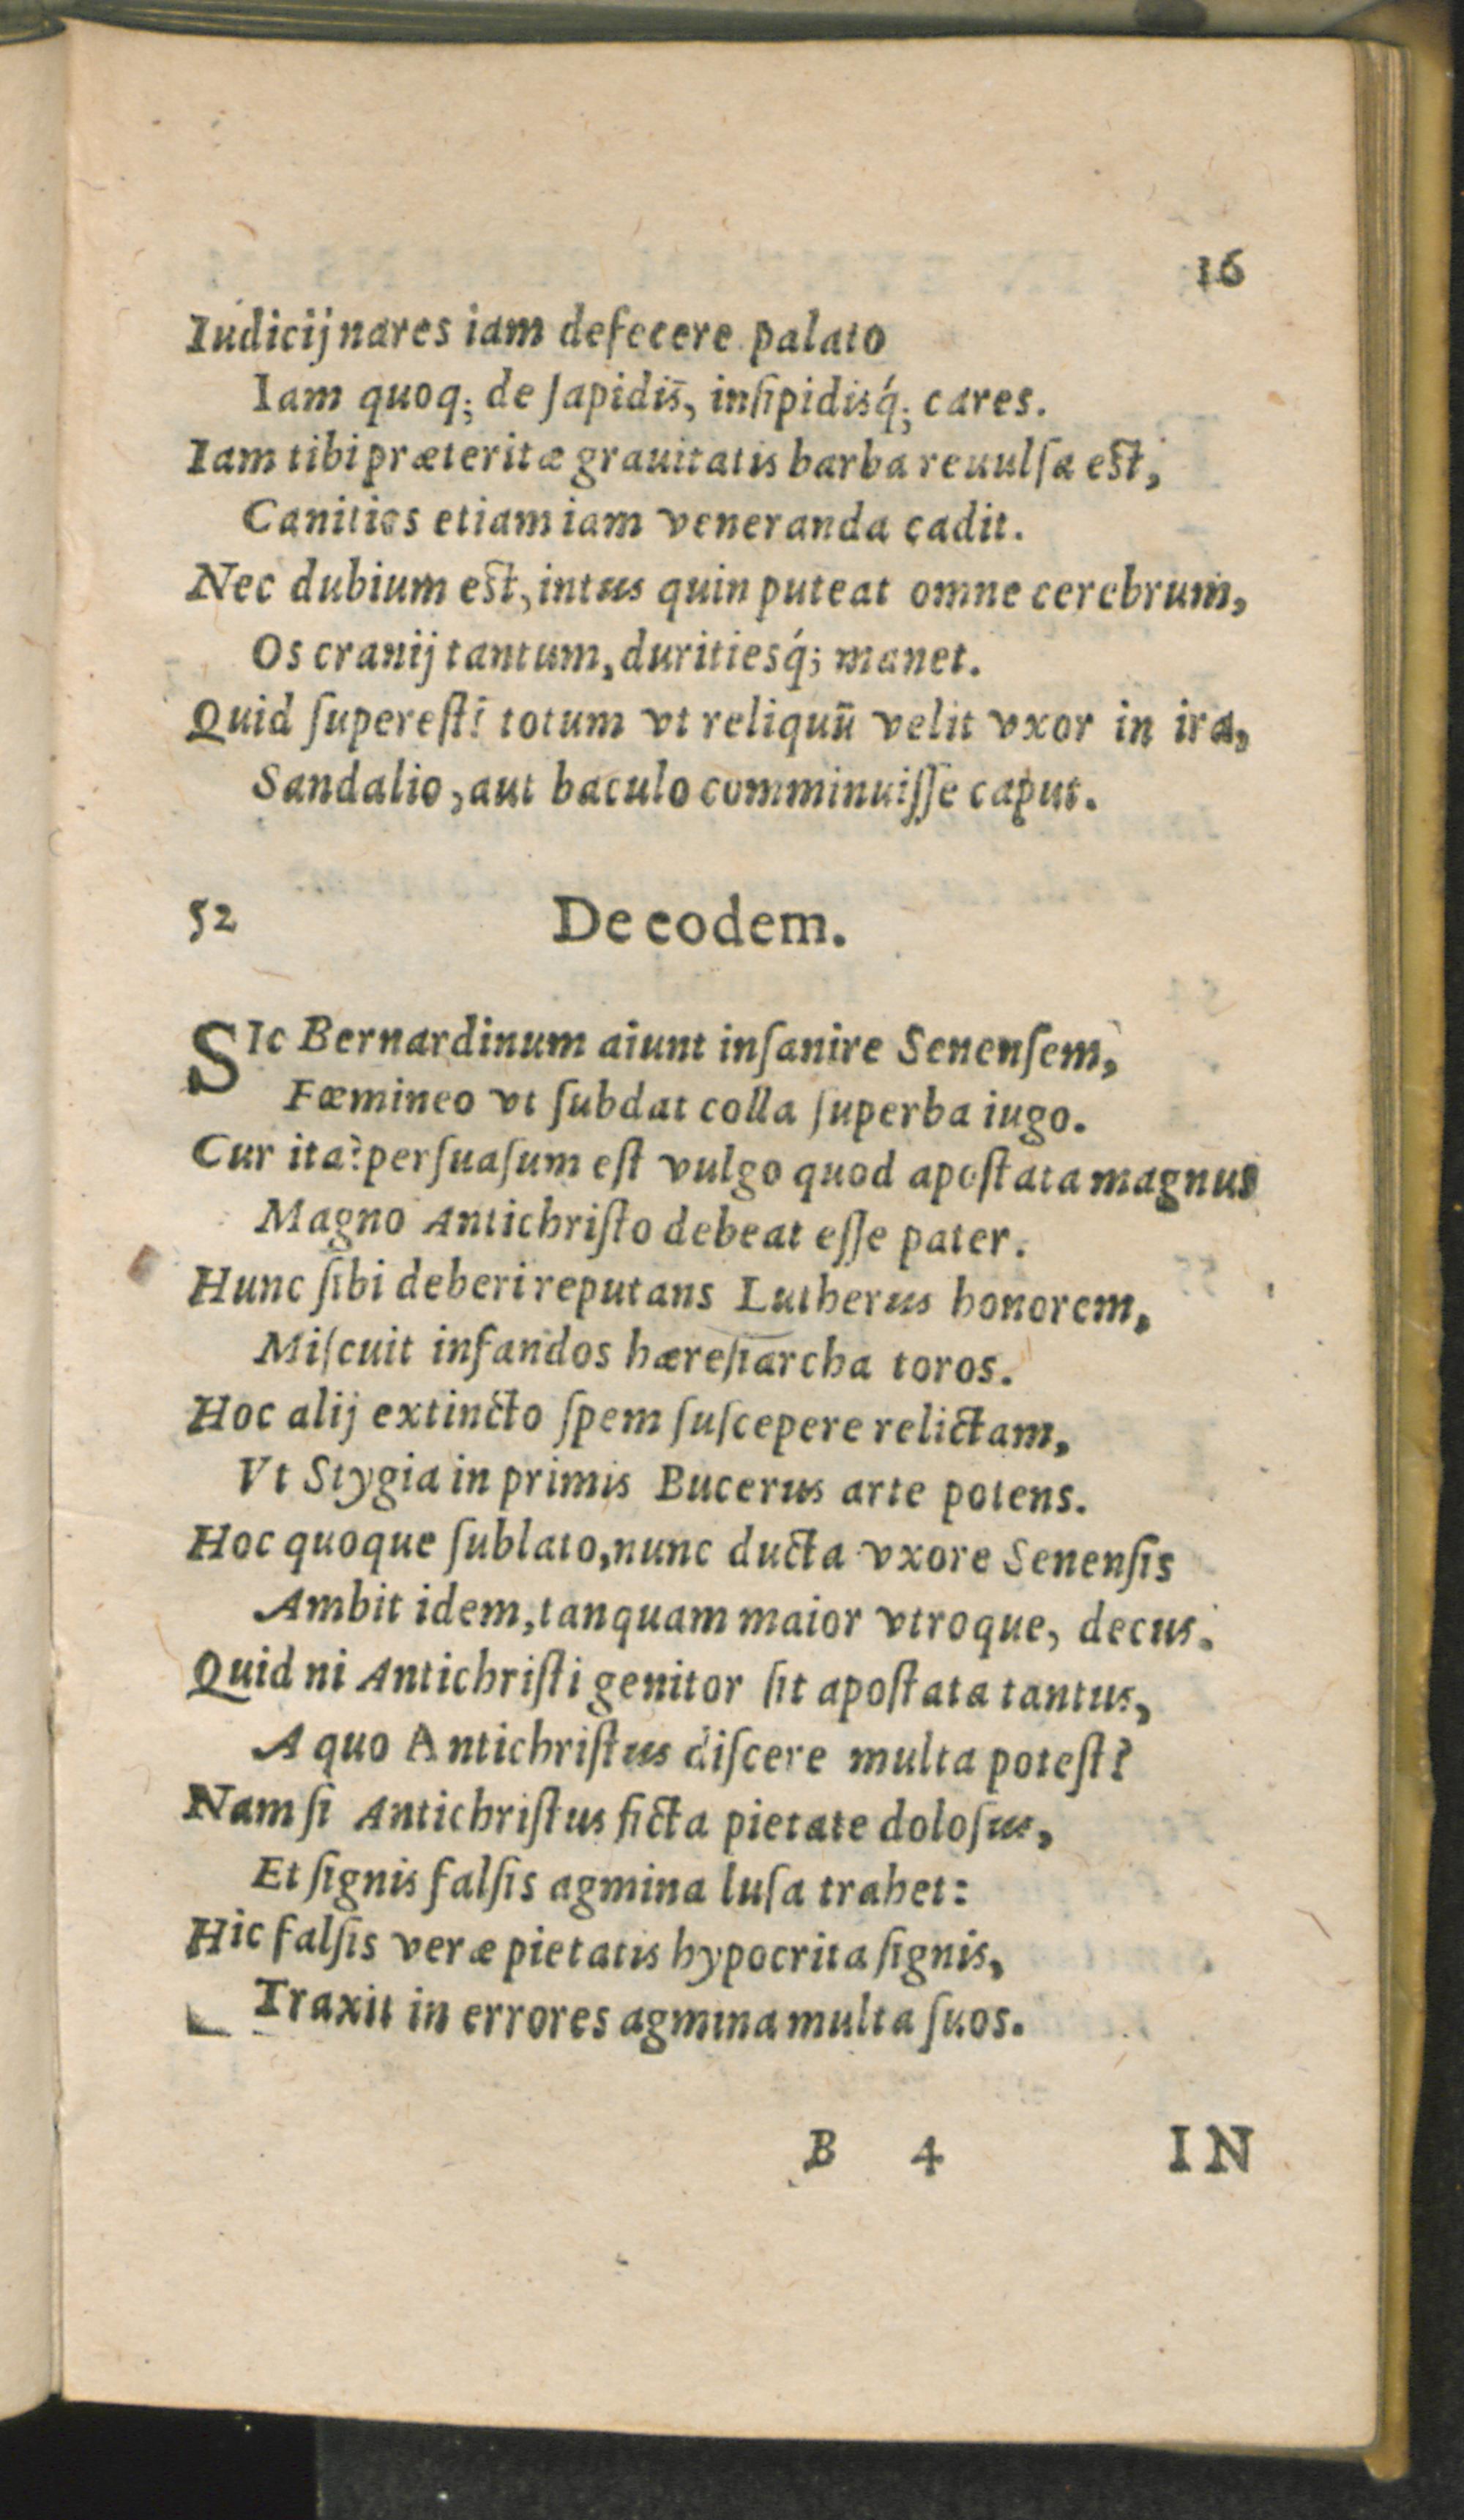 16
Iudicij nares iam defecere palato
Iam quoq; de ſapidis, inſipidisq́; cares.
Iam tibi præteritæ grauitatis barba reuulſa eſt,
Canities etiam iam veneranda cadit.
Nec dubium eſt, intus quin puteat omne cerebrum,
Os cranij tantum, duritiesq́; manet.
Quid ſupereſt? totum vt reliquũ velit vxor in ira,
Sandalio, aut baculo comminuiſſe caput.
52 De eodem.
SIc Bernardinum aiunt inſanire Senenſem,
Fœmineo vt ſubdat colla ſuperba iugo.
Cur ita? perſuaſum eſt vulgo quod apoſtata magnus
Magno Antichriſto debeat eſſe pater.
Hunc ſibi deberi reputans Lutherus honorem,
Miſcuit infandos hæreſiarcha toros.
Hoc alij extincto ſpem ſuſcepere relictam,
Vt Stygia in primis Bucerus arte potens.
Hoc quoque ſublato, nunc ducta vxore Senenſis
Ambit idem, tanquam maior vtroque, decus.
Quid ni Antichriſti genitor ſit apoſtata tantus,
A quo Antichriſtus diſcere multa poteſt?
Nam ſi Antichriſtus ficta pietate doloſus,
Et ſignis falſis agmina luſa trahet:
Hic falſis veræ pietatis hypocrita ſignis,
Traxit in errores agmina multa ſuos.
B 4 IN